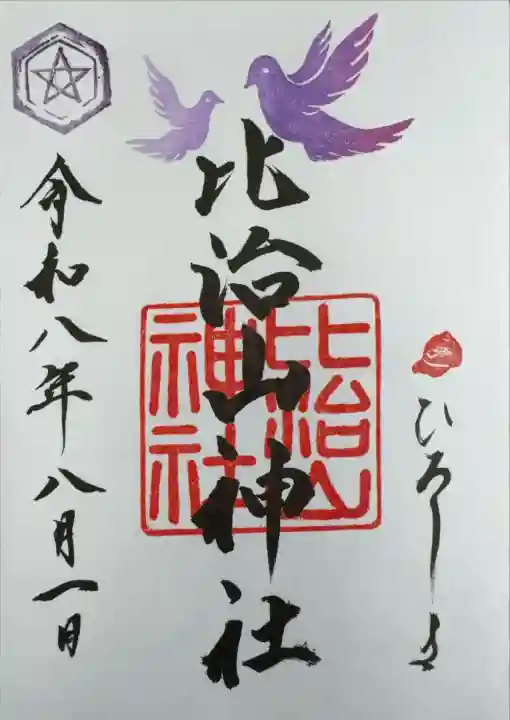 ひろしま
比治山神社
比治山
神社
令和八年八月一日